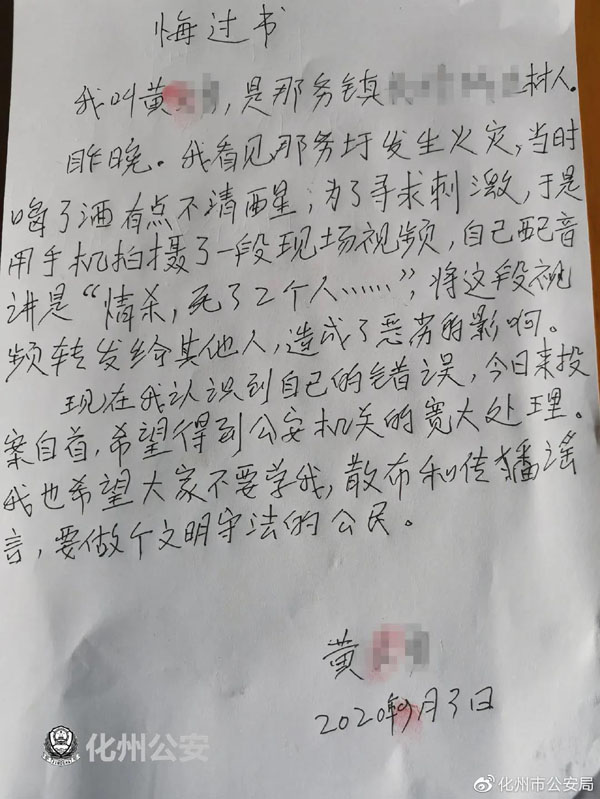 悔过书
我叫黄，是那务镇村人。
昨晚。我看见那务圩发生火灾，当时
喝了酒有点不清醒，为了寻求刺激，于是
用手机拍摄了一段现场视频，自己配音
讲是“情杀，死了2个人……”，将这段视
频转发给其他人，造成了恶劣的影响。
现在我认识到自己的错误，今日来投
案自首，希望得到公安机关的宽大处理。
我也希望大家不要学我，散布和传播谣
言，要做个文明守法的公民。
黄
2020年9月3日
化州公安
化州市公安局